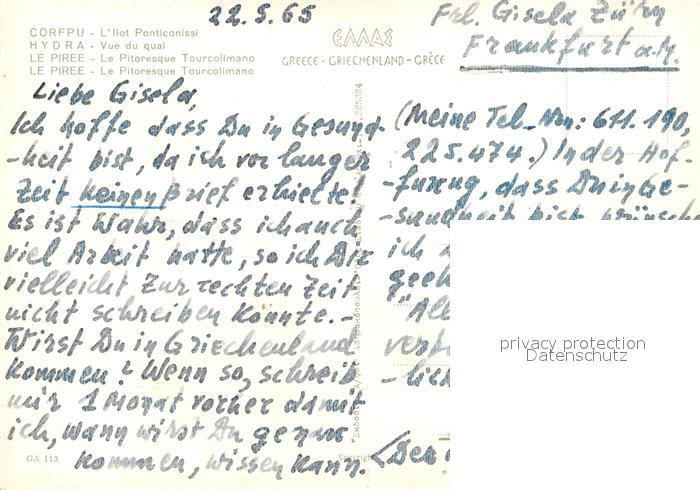 22.5.65
CORFPU - L'Ilot Ponticonissi
HYDRA - Vue du quai
LE PIREE - Le Pitoresque Tourcolimano
LE PIREE - Le Pitoresque Tourcolimano
ΕΛΛΑΣ
GREECE - GRIECHENLAND - GRÈCE
Frl. Gisela
Frankfurt a.M.
Liebe Gisela,
Ich hoffe dass Du in Gesund-
-heit bist, da ich vor langer
Zeit keinen Brief erhielte!
Es ist Wahr, dass ich auch
viel Arbeit hatte, so ich Dir
vielleicht zur rechten Zeit
nicht schreiben könnte.-
Wirst Du in Griechenland
kommen? Wenn so, schreib
mir 1 Monat vorher damit
ich, wann wirst Du genau
kommen, wissen kann.
(Meine Tel. Nrn: 611.190,
225.474.) In der Hof-
-funug, dass Du in Ge-
-sundheit bist, wünsch
ich
geeh
"All
vert
-lich
privacy protection
Datenschutz
GA 113
Copyright
225324